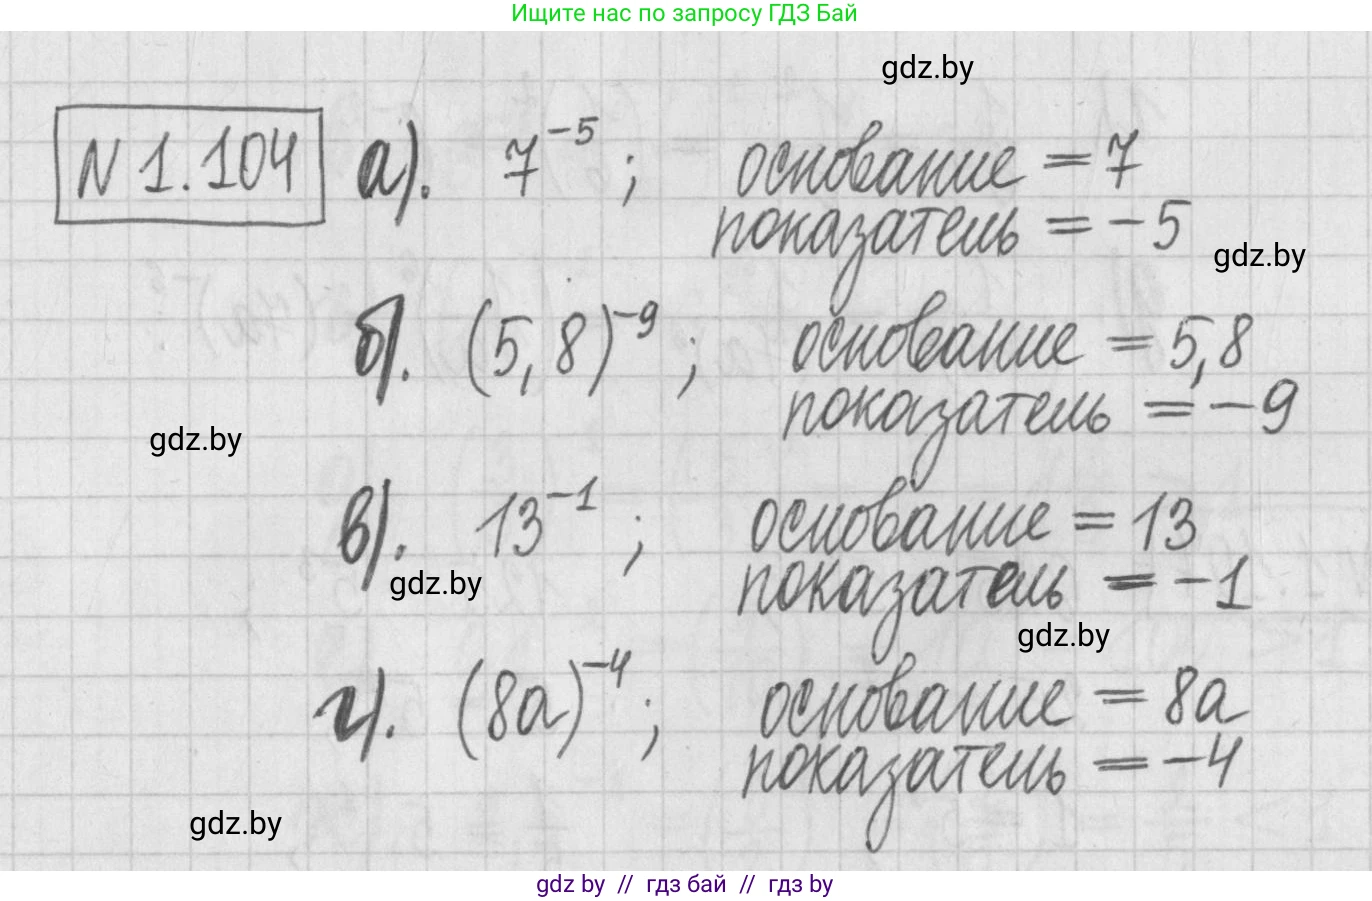 Ищите нас по запросу ГДЗ Бай
gdz.by
N 1.104 а). 7^-5 ; основание = 7
показатель = -5
gdz.by
б). (5,8)^-9 ; основание = 5,8
показатель = -9
gdz.by
в). 13^-1 ; основание = 13
показатель = -1
gdz.by
gdz.by
г). (8a)^-4 ; основание = 8a
показатель = -4
gdz.by
gdz by // гдз бай // гдз by